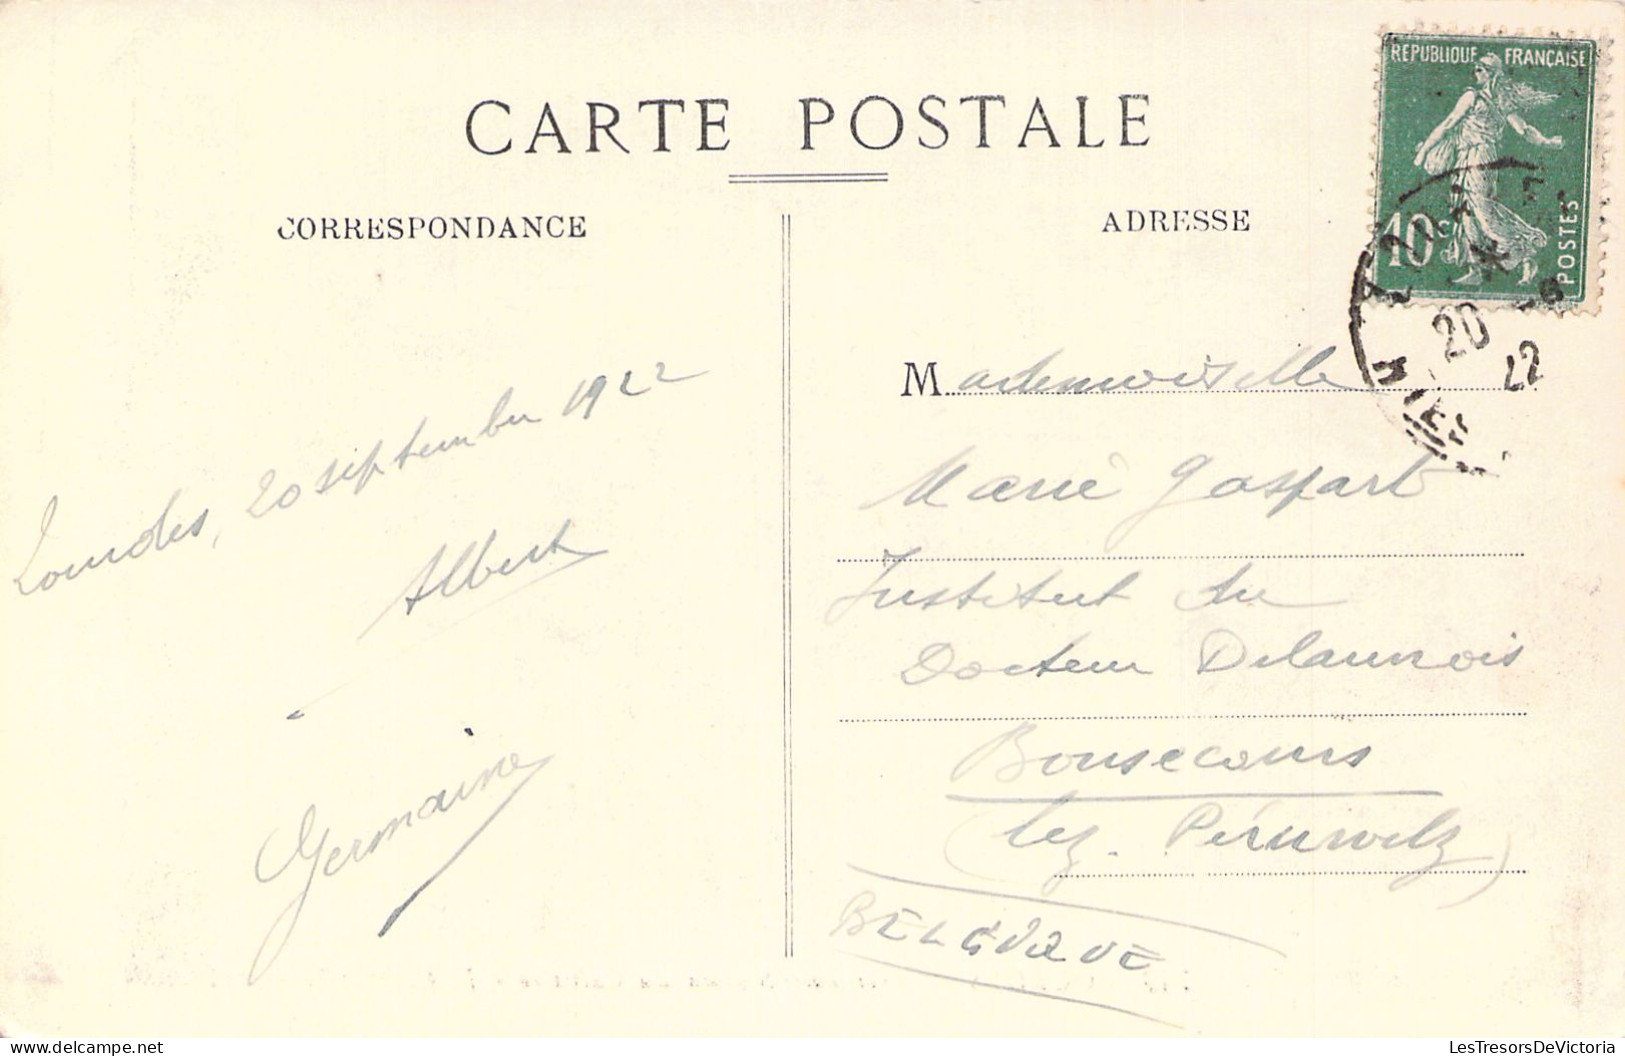 CARTE POSTALE
CORRESPONDANCE
ADRESSE
REPUBLIQUE FRANÇAISE
10c
POSTES
20 -9
22
Lourdes, 20 septembre 1922
Albert
Germaine
Mademoiselle
Marie Gaspart
Institut du
Docteur Delaunois
Bonsecours
(lez-Péruwelz)
BELGIQUE
LesTresorsDeVictoria